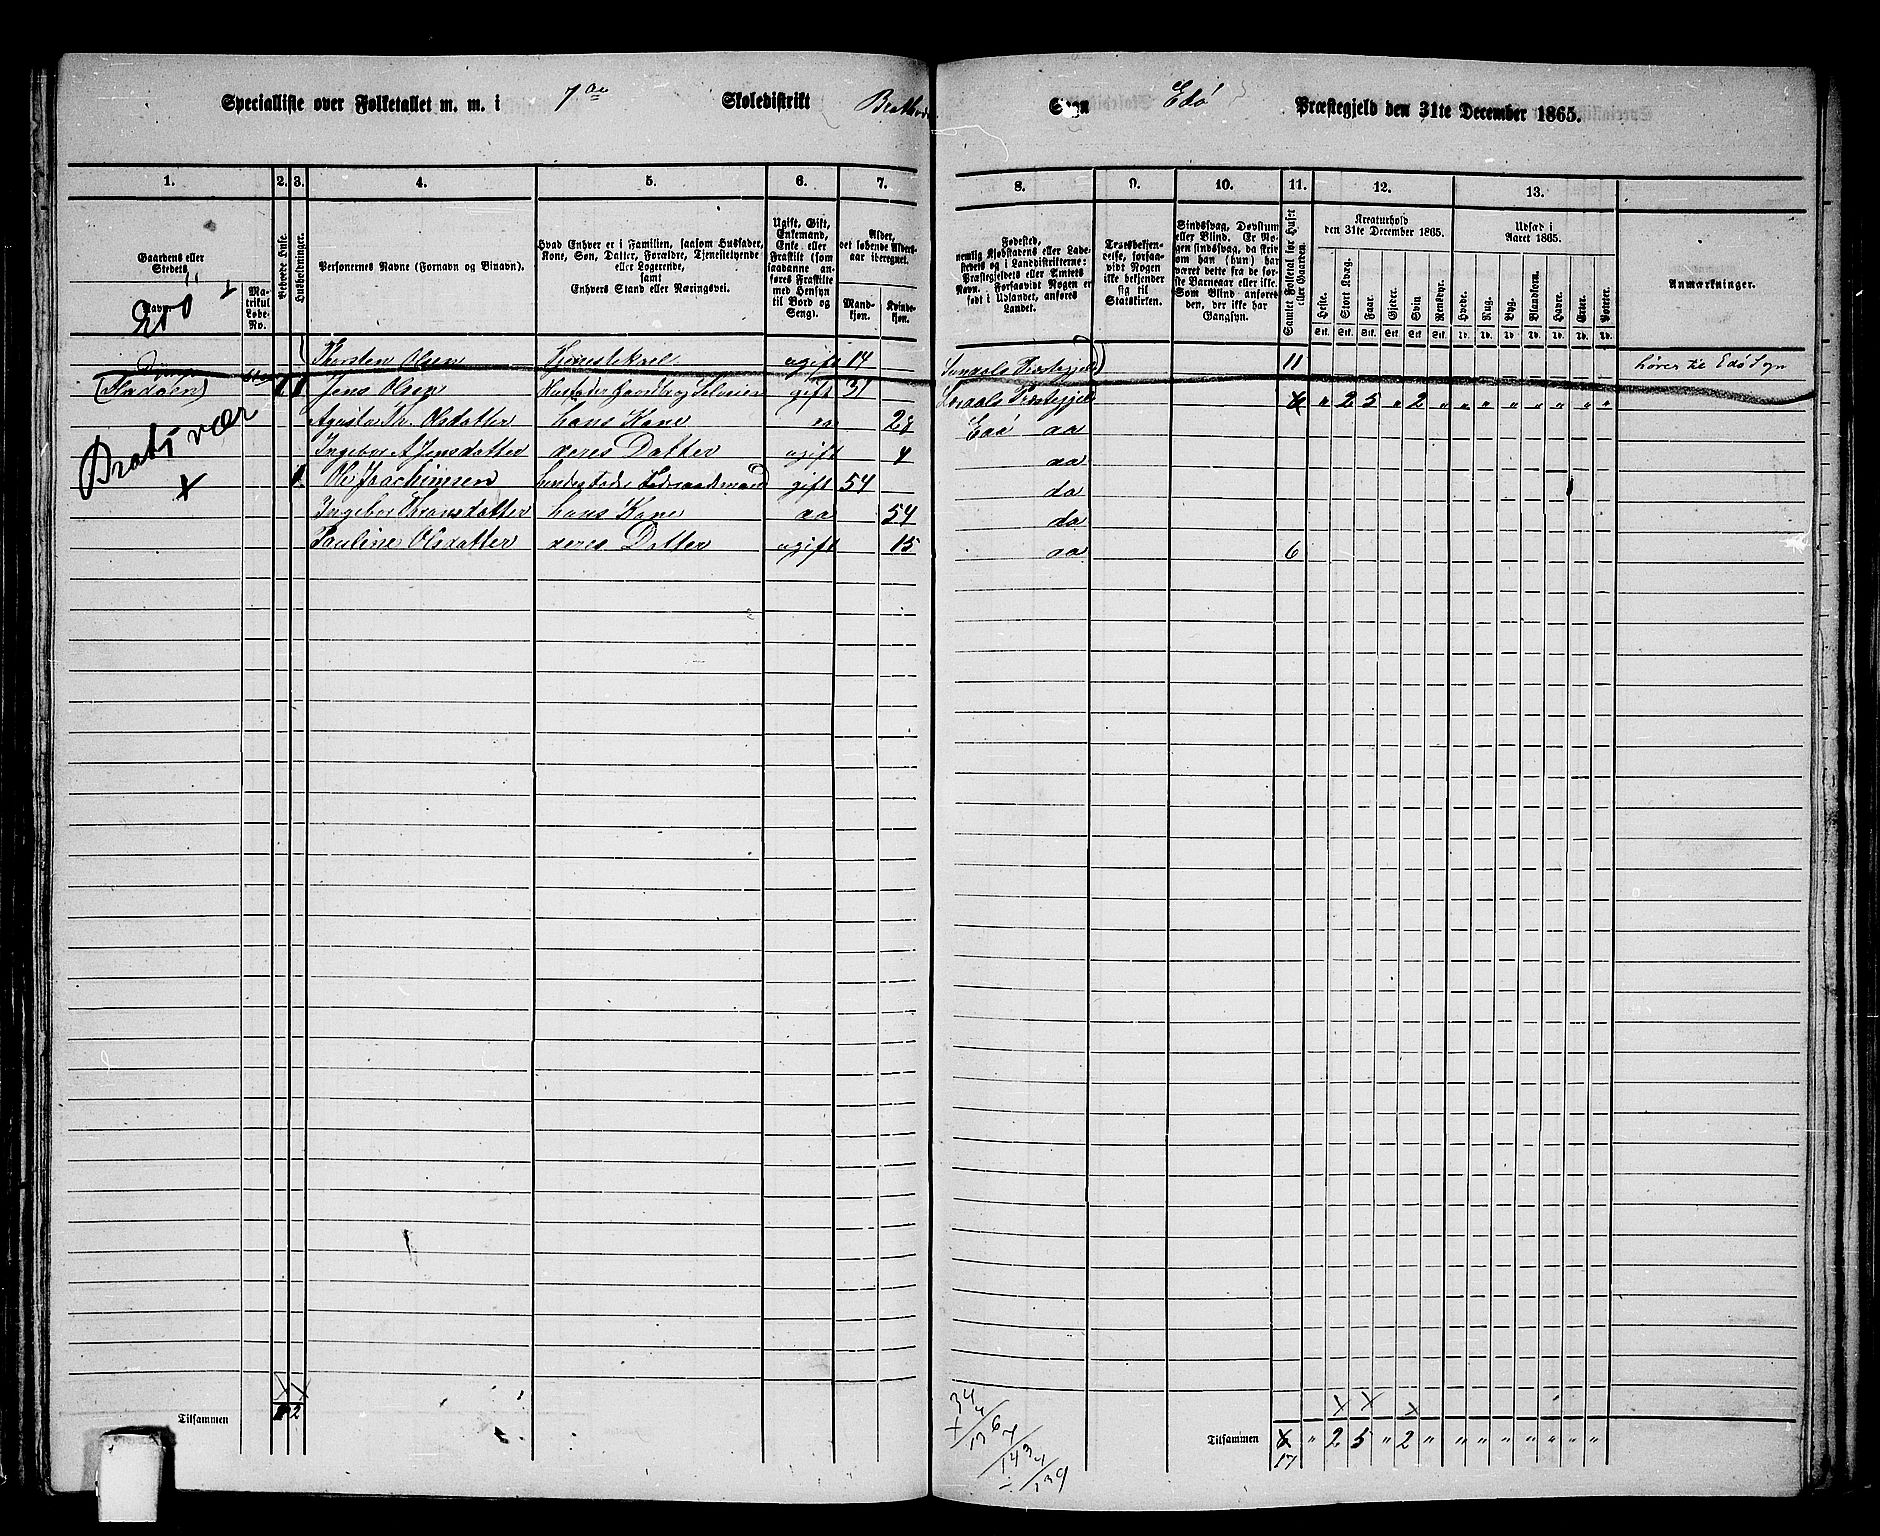 Specialliste over Folketallet m. m. i 7de Skoledistrikt Sogn Edø Præstegjeld den 31te December 1865.
1. 2. 3. 4. 5. 6. 7. 8. 9. 10. 11. 12. 13.
Gaardens eller Stedets Navn.
Matrikul Løbe-No.
Beboede Huse.
Husholdninger.
Personernes Navne (Fornavn og Binavn).
Hvad Enhver er i Familien, saasom Husfader,
Kone, Søn, Datter, Forældre, Tjenestetyende
eller Logerende,
samt
Enhvers Stand eller Næringsvei.
Ugift, Gift,
Enkemand,
Enke eller
Fraskilt (som
saadanne an-
føres Fraskilte
med Hensyn
til Bord og
Seng).
Alder,
det løbende Alders-
aar iberegnet.
Mand-
kjøn.
Kvinde-
kjøn.
Fødested,
nemlig Kjøbstadens eller Lade-
stedets og i Landdistrikterne:
Præstegjeldets eller Amtets
Navn. Forsaavidt Nogen er
født i Udlandet, anføres
Landet.
Troesbekjen-
delse, forsaa-
vidt Nogen
ikke bekjender
sig til
Statskirken.
Sindssvag, Døvstum
eller Blind. Er No-
gen sindssvag, da skri-
ves om han (hun) har
været dette fra de før-
ste Barneaar eller ikke.
Som Blind anføres
den, der ikke har
Gangsyn.
Samlet Folketal for Huset
eller Gaarden.
Kreaturhold
den 31te December 1865.
Heste. Stort Kvæg. Faar. Gjeder. Svin. Rensdyr.
Udsæd i
Aaret 1865.
Hvede. Rug. Byg. Blandkorn. Havre. Erter. Poteter.
Anmærkninger.
Edø
Torsten Olsen ugift 14 Sundals Præstegjeld 11 hører til Edø Sogn
(Fladøen) 1 1 Jens Olsen gift 31 Præstegjeld 6 " 2 5 " 2 " " " " " " " "
Bratsvær
Olsdatter hans Kone do 28 Edø do
Ingebor A. Jensdatter deres Datter ugift 4 do
x 1 Ole Joachimsen gift 54 do
Ingebor hans Kone do 54 do
Pauline Olsdatter deres Datter ugift 15 do 6
Tilsammen 1 2
34
139
Tilsammen 6 " 2 5 " 2 " " " " " " "
17